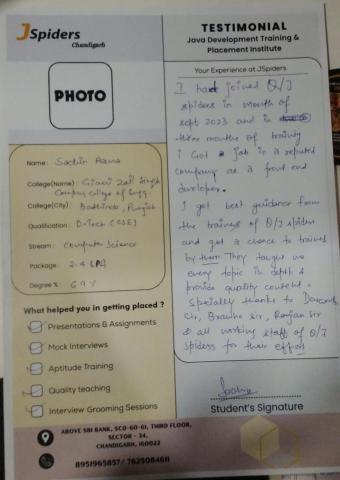 JSpiders
Chandigarh
PHOTO
Name: Sachin Rana
College(Name): Giani Zail Singh
Campus college of Engg.
College(City): Bathinda, Punjab
Qualification: B-Tech (CSE)
Stream: Computer Science
Package: 2.4 LPA
Degree %: 69%
What helped you in getting placed ?
Presentations & Assignments
Mock Interviews
Aptitude Training
Quality teaching
Interview Grooming Sessions
TESTIMONIAL
Java Development Training &
Placement Institute
Your Experience at JSpiders
I had joined Q/J
spiders in month of
sept 2023 and in
three months of trainig
i Got a job in a reputed
company as a front end
developer.
I get best guidance from
the trainers of Q/J spiders
and got a chance to trained
by them They taught us
every topic in depth &
provide quality content.
Specially thanks to
Sir, Sir, Ranjan Sir
& all working staff of Q/J
spiders for their effort
Student's Signature
ABOVE SBI BANK, SCO-60-61, THIRD FLOOR,
SECTOR - 34,
CHANDIGARH, 160022
8951965857/ 7625084611